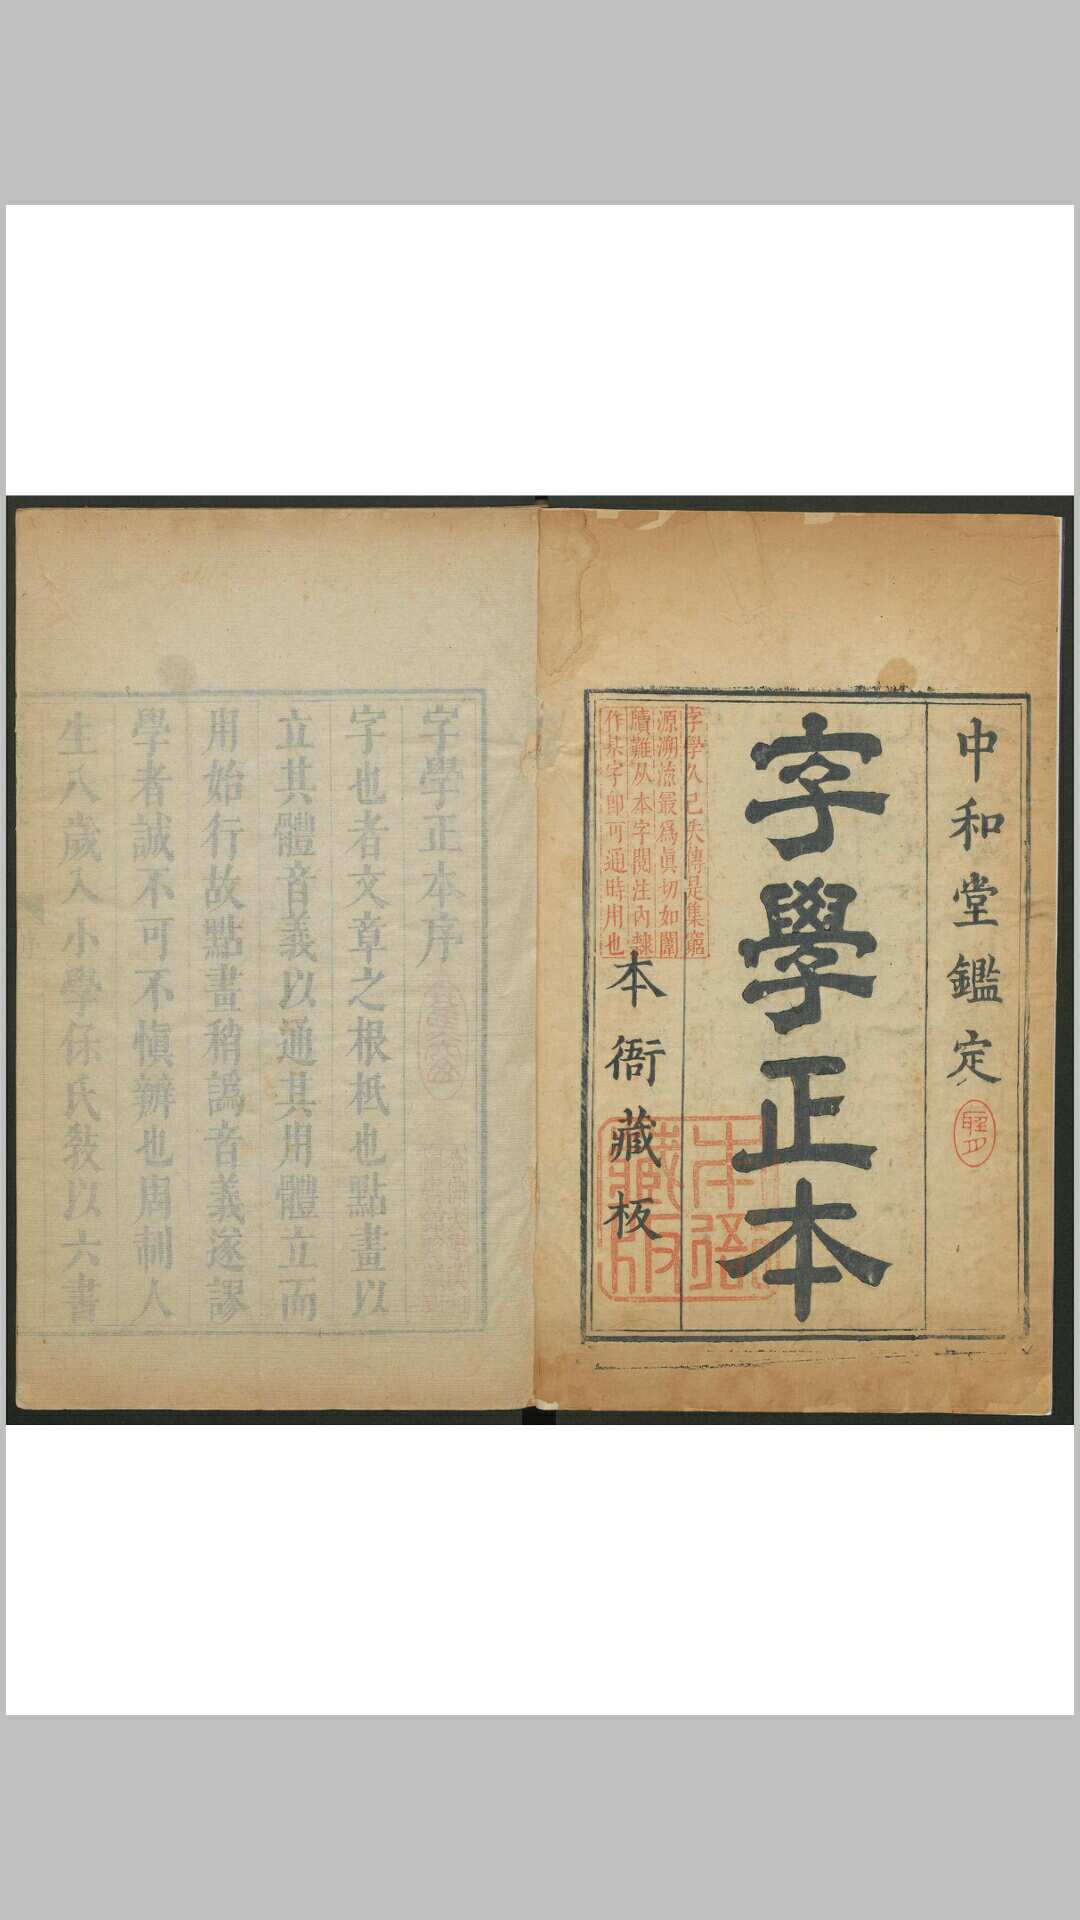 中和堂鑑定
字學正本
字學久已失傳是集窮
源溯流最爲眞切如閱
牘難从本字閱注內隸
作某字即可通時用也
本衙藏板
本衙
藏版
字學正本序
字也者文章之根柢也點畫以
立其體音義以通其用體立而
用始行故點畫稍譌音義遂謬
學者誠不可不愼辧也周制人
生八歲入小學保氏敎以六書